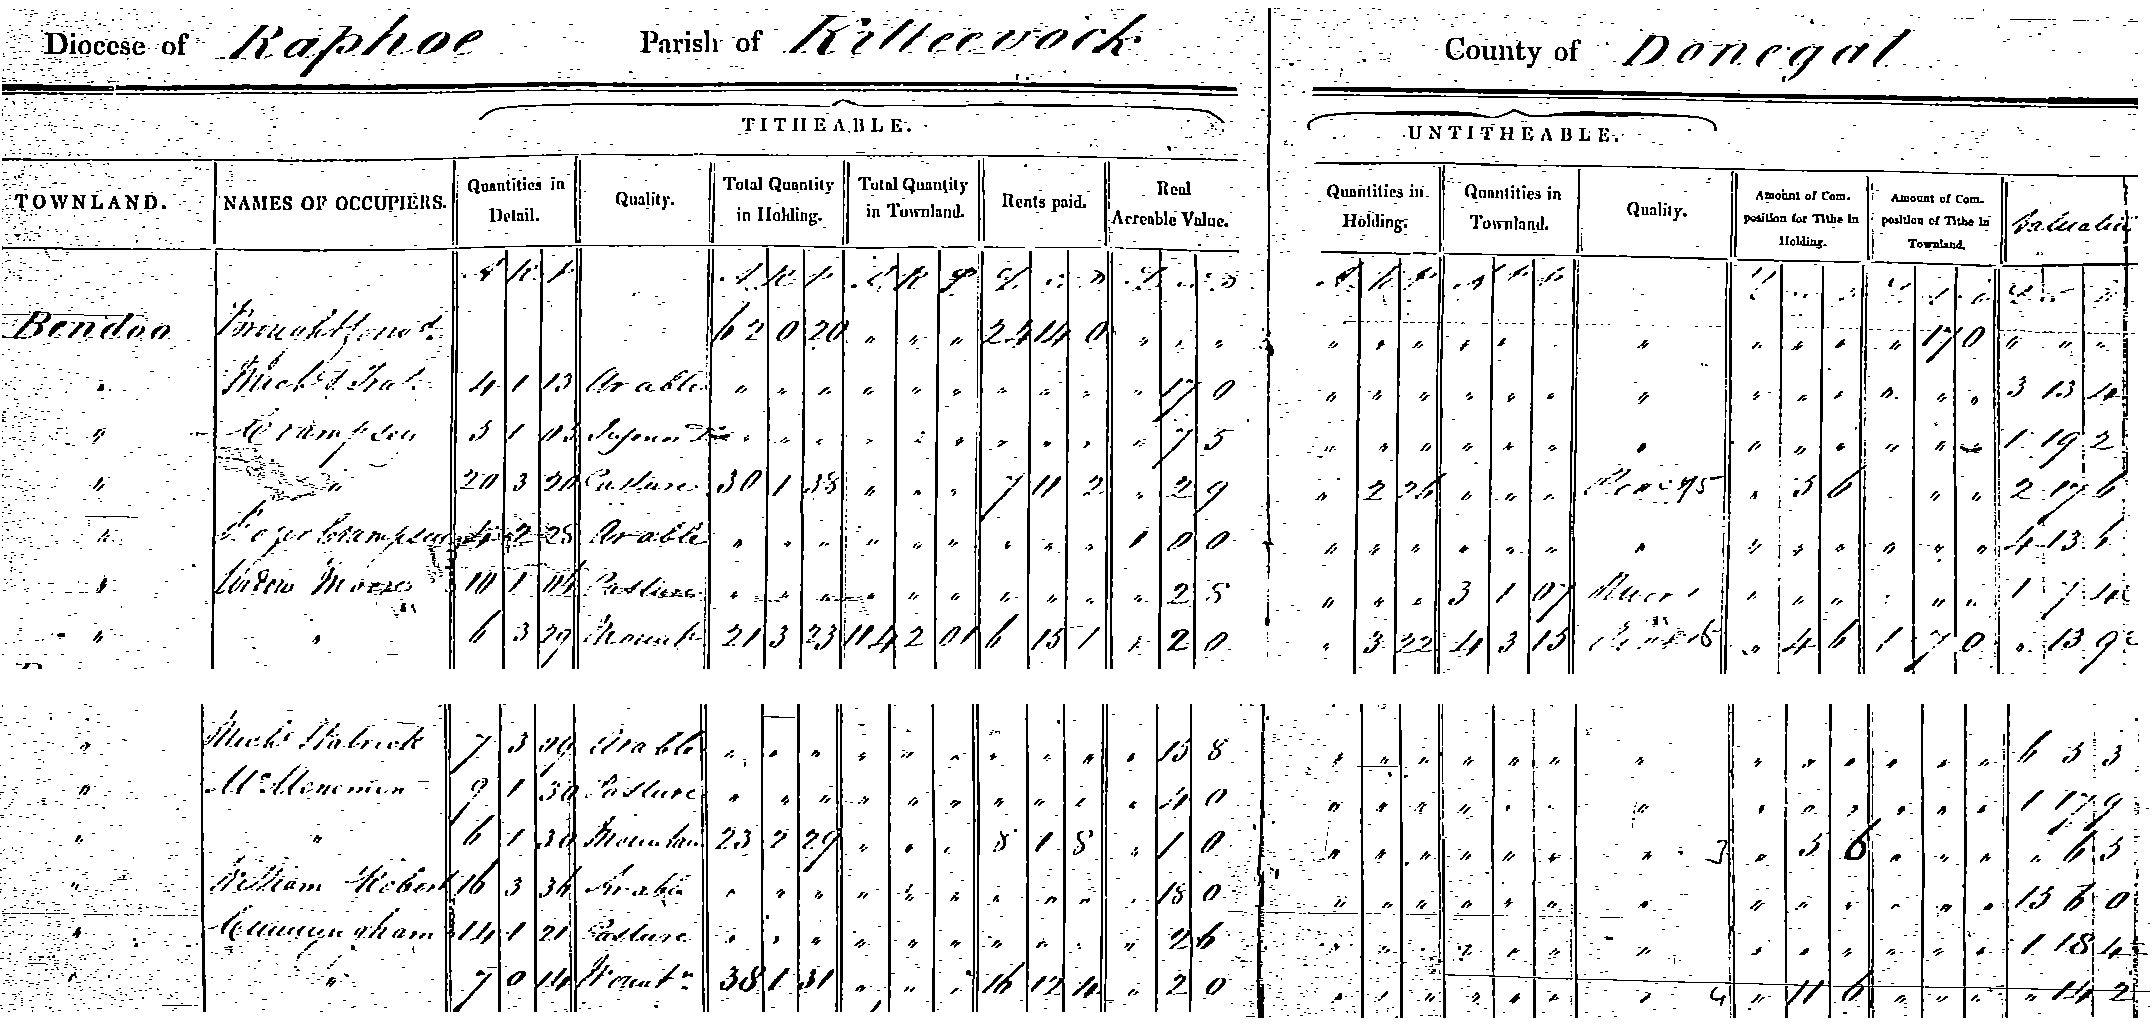 Diocese of Raphoe Parish of Kilteevock County of Donegal
TITHEABLE. UNTITHEABLE.
TOWNLAND. NAMES OF OCCUPIERS. Quantities in Detail. Quality. Total Quantity in Holding. Total Quantity in Townland. Rents paid. Real Acreable Value. Quantities in Holding. Quantities in Townland. Quality. Amount of Composition for Tithe in Holding. Amount of Composition of Tithe in Townland. Valuation
A R P A R P A R P
Bendoo 62 0 20 " " " 22 14 0 " " " " " " " " " " " " " 17 0 " " "
" 4 1 13 Arable " " " " " " " " " " 17 0 " " " " " " " " " " " " " 3 13 4
" Crampsey 3 1 " " " " " " " " " " 7 5 " " " " " " " " " " " " " 1 19 2
" " 20 3 20 Pasture 30 1 38 " " " 7 11 2 " 2 9 " 2 26 " " " " 3 6 " " " 2 17 6
" 4 2 28 Arable " " " " " " " " " 1 0 0 " " " " " " " " " " " " " 4 13 6
" Widow Moore 10 1 04 Pasture " " " " " " " " " " 2 8 " " " 3 1 07 " " " " " " 1 7 4
" " 6 3 29 Mount 21 3 23 114 2 01 6 15 1 " 2 0 " 3 22 4 3 15 " 4 6 1 7 0 " 13 9
" Michl Patrick 7 3 09 Arable " " " " " " " " " " 15 8 " " " " " " " " " " " " " 6 3 3
" McMenemin 9 1 30 Pasture " " " " " " " " " " 4 0 " " " " " " " " " " " " " 1 17 9
" " 6 1 30 Mountain 23 2 29 " " " 8 1 8 " 1 0 " " " " " " " 3 " 5 6 " " " " 6 3
" William Robert 16 3 36 Arable " " " " " " " " " " 18 0 " " " " " " " " " " " " " 15 6 0
" Cunningham 14 1 21 Pasture " " " " " " " " " " 2 6 " " " " " " " " " " " " " 1 18 4
" " 7 0 14 Mountn 38 1 31 " " " 16 12 4 " 2 0 " " " " " " " 4 " 11 6 " " " " 14 2